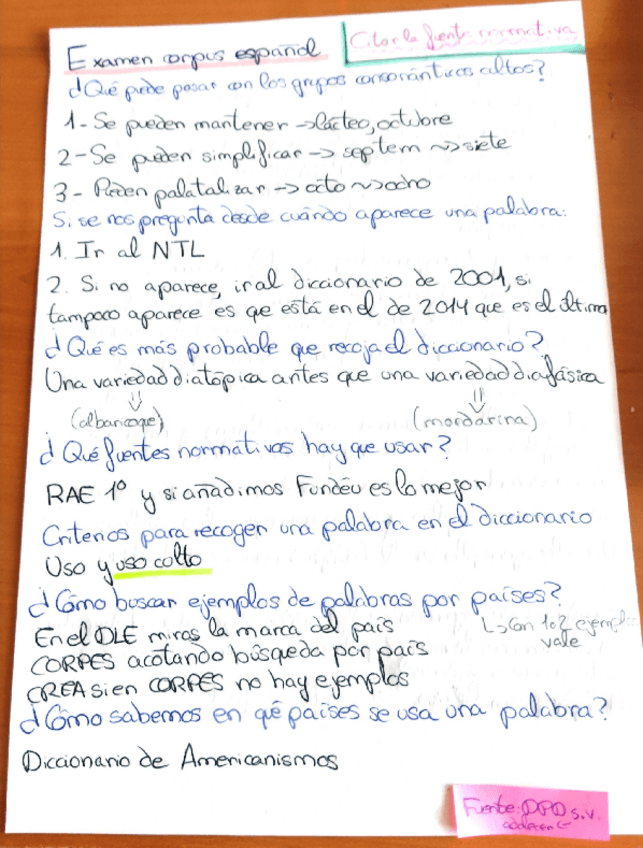 Examen corpus español
Citar la fuente normativa
¿Qué puede pasar con los grupos consonánticos cultos?
1-Se pueden mantener → lácteo, octubre
2-Se pueden simplificar → septem ~> siete
3- Pueden palatalizar → octo ~> ocho
Si se nos pregunta desde cuándo aparece una palabra:
1. Ir al NTL
2. Si no aparece, ir al diccionario de 2001, si
tampoco aparece es que está en el de 2014 que es el último
¿Qué es más probable que recoja el diccionario?
Una variedad diatópica antes que una variedad diafásica
(albaricoque) (mordarina)
¿Qué fuentes normativas hay que usar?
RAE 1º y si añadimos Fundéu es lo mejor
Criterios para recoger una palabra en el diccionario
Uso y uso culto
¿Cómo buscar ejemplos de palabras por países?
En el DLE miras la marca del país
↳ Con 1o2 ejempl
vale
CORPES acotando búsqueda por país
CREA si en CORPES no hay ejemplos
¿Cómo sabemos en qué países se usa una palabra?
Diccionario de Americanismos
Fuente: DPD s.v.